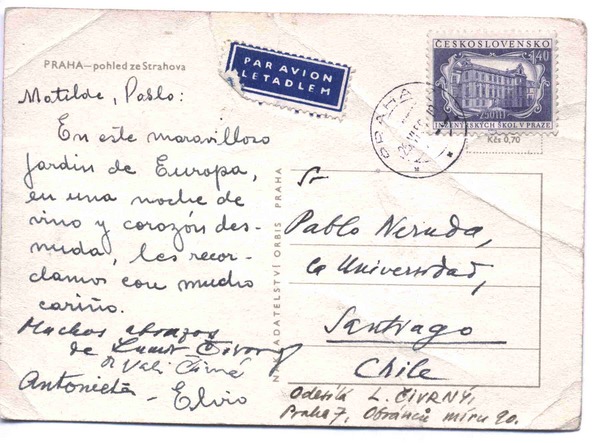 PRAHA—pohled ze Strahova
PAR AVION
LETADLEM
ČESKOSLOVENSKO
1,40
INŽENÝRSKÝCH ŠKOL V PRAZE
PRAHA
Kčs 0,70
Matilde, Pablo:
En este maravilloso
jardín de Europa,
en una noche de
vino y corazón des-
nuda, les recor-
damos con mucho
cariño.
Muchos abrazos
de
Antonieta - Elvio
NAKLADATELSTVÍ ORBIS PRAHA
Sr
Pablo Neruda,
la Universidad,
Santiago
Chile
Odesílá L. ČIVRNÝ,
Praha 7, Obránců míru 90.